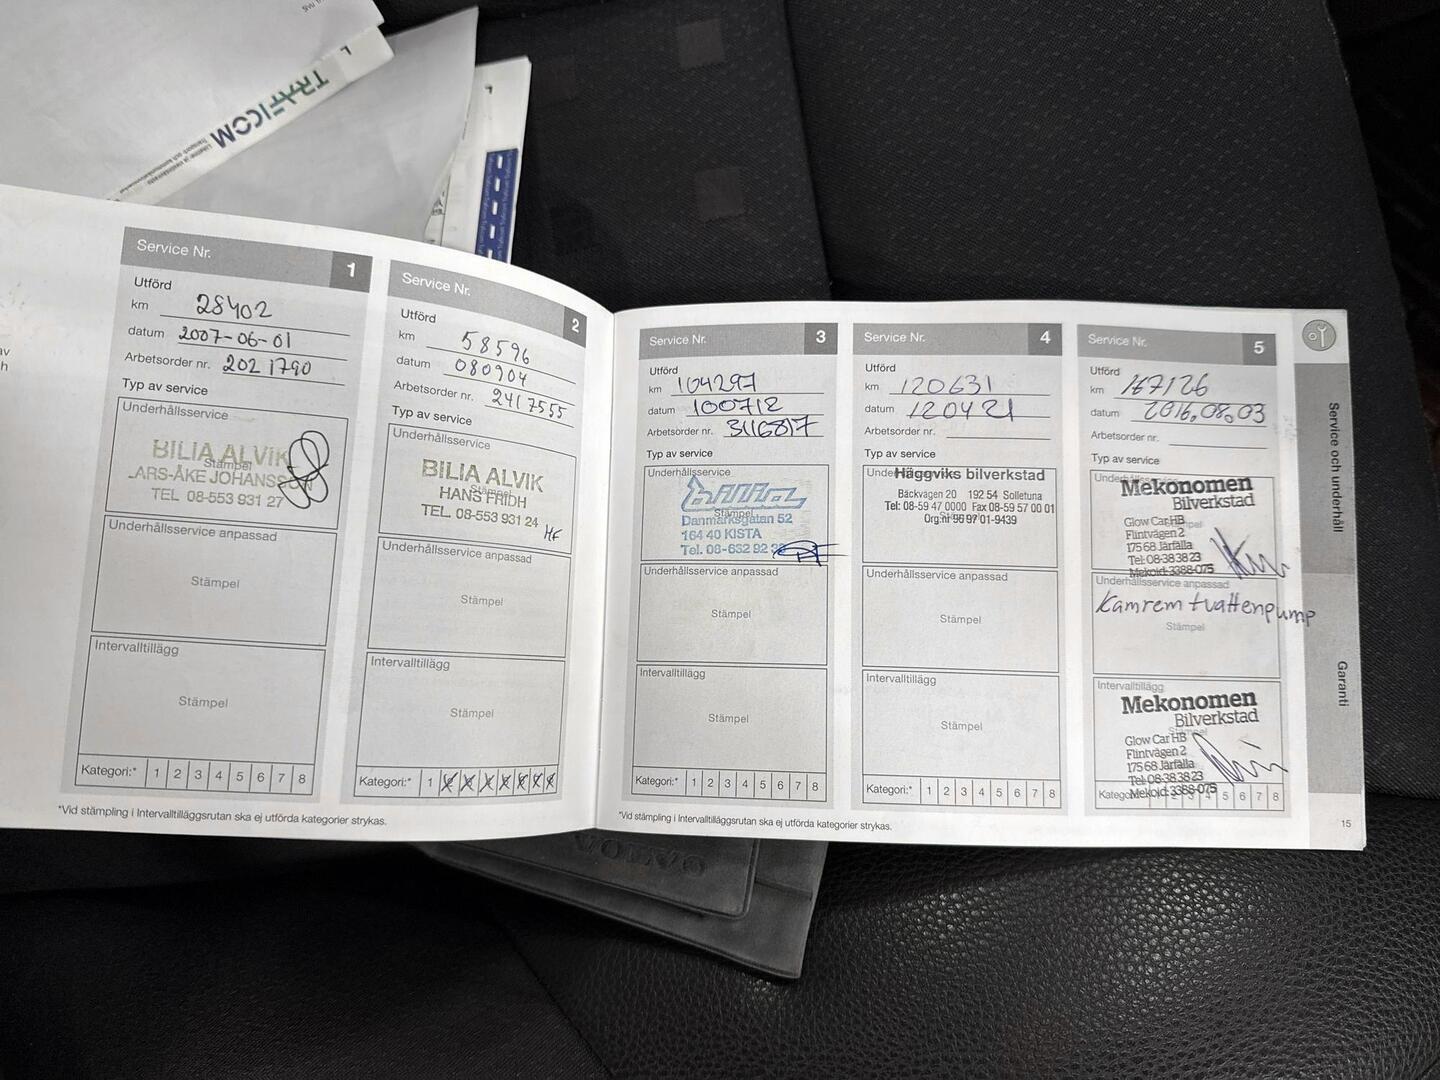 TRAFICOM
Service Nr. 1
Utförd
km 28402
datum 2007-06-01
Arbetsorder nr. 202 1790
Typ av service
Underhållsservice
BILIA ALVIK
Stämpel
LARS-ÅKE JOHANSSON
TEL 08-553 931 27
Underhållsservice anpassad
Stämpel
Intervalltillägg
Stämpel
Kategori:* 1 2 3 4 5 6 7 8
Service Nr. 2
Utförd
km 58596
datum 080904
Arbetsorder nr. 2417555
Typ av service
Underhållsservice
BILIA ALVIK
Stämpel
HANS FRIDH
TEL. 08-553 931 24
HF
Underhållsservice anpassad
Stämpel
Intervalltillägg
Stämpel
Kategori:* 1
*Vid stämpling i Intervalltilläggsrutan ska ej utförda kategorier strykas.
Service Nr. 3
Utförd
km 104297
datum 100712
Arbetsorder nr. 3116817
Typ av service
Underhållsservice
bilia
Stämpel
Danmarksgatan 52
164 40 KISTA
Tel. 08-632 92
Underhållsservice anpassad
Stämpel
Intervalltillägg
Stämpel
Kategori:* 1 2 3 4 5 6 7 8
Service Nr. 4
Utförd
km 120631
datum 120421
Arbetsorder nr.
Typ av service
Häggviks bilverkstad
Bäckvägen 20 192 54 Solletuna
Tel: 08-59 47 0000 Fax 08-59 57 00 01
Org.nr 96 97 01-9439
Underhållsservice anpassad
Stämpel
Intervalltillägg
Stämpel
Kategori:* 1 2 3 4 5 6 7 8
Service Nr. 5
Utförd
km 167126
datum 2016.08.03
Arbetsorder nr.
Typ av service
Mekonomen
Bilverkstad
Glow Car HB
Flintvägen 2
175 68 Järfälla
Tel: 08-38 38 23
Mekoid: 3388-075
Underhållsservice anpassad
Kamrem + vattenpump
Stämpel
Intervalltillägg
Mekonomen
Bilverkstad
Glow Car HB
Flintvägen 2
175 68 Järfälla
Tel: 08-38 38 23
Mekoid: 3388-075
5 6 7 8
*Vid stämpling i Intervalltilläggsrutan ska ej utförda kategorier strykas.
15
Service och underhåll
Garanti
VOLVO